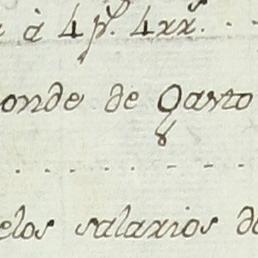 à 4 p.s 4 xx.s
onde de Qarto
8
elos salarios de